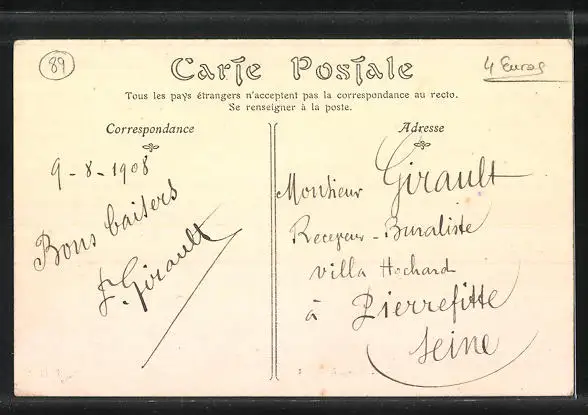 89
Carte Postale
4 Euros
Tous les pays étrangers n'acceptent pas la correspondance au recto.
Se renseigner à la poste.
Correspondance
9-8-1908
Bons baisers
F. Girault
Adresse
Monsieur Girault
Receveur-Buraliste
Villa Hochard
à Pierrefitte
Seine